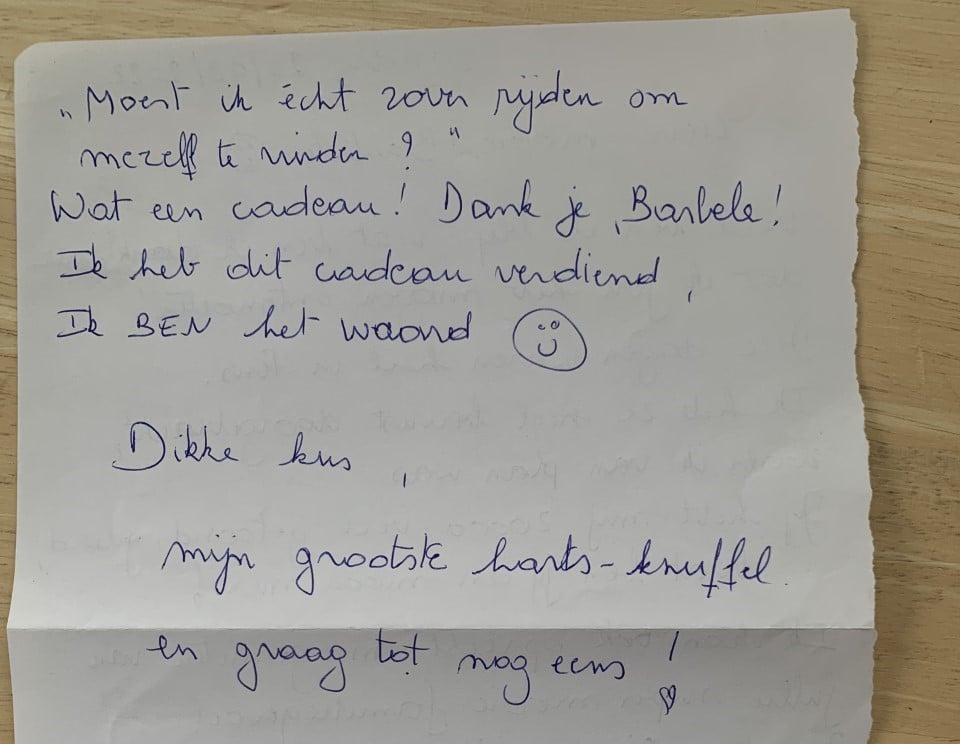 „Moest ik écht zover rijden om
mezelf te vinden?"
Wat een cadeau! Dank je, Barbele!
Ik heb dit cadeau verdiend,
Ik BEN het waard
Dikke kus,
mijn grootste harts-knuffel.
en graag tot nog eens!